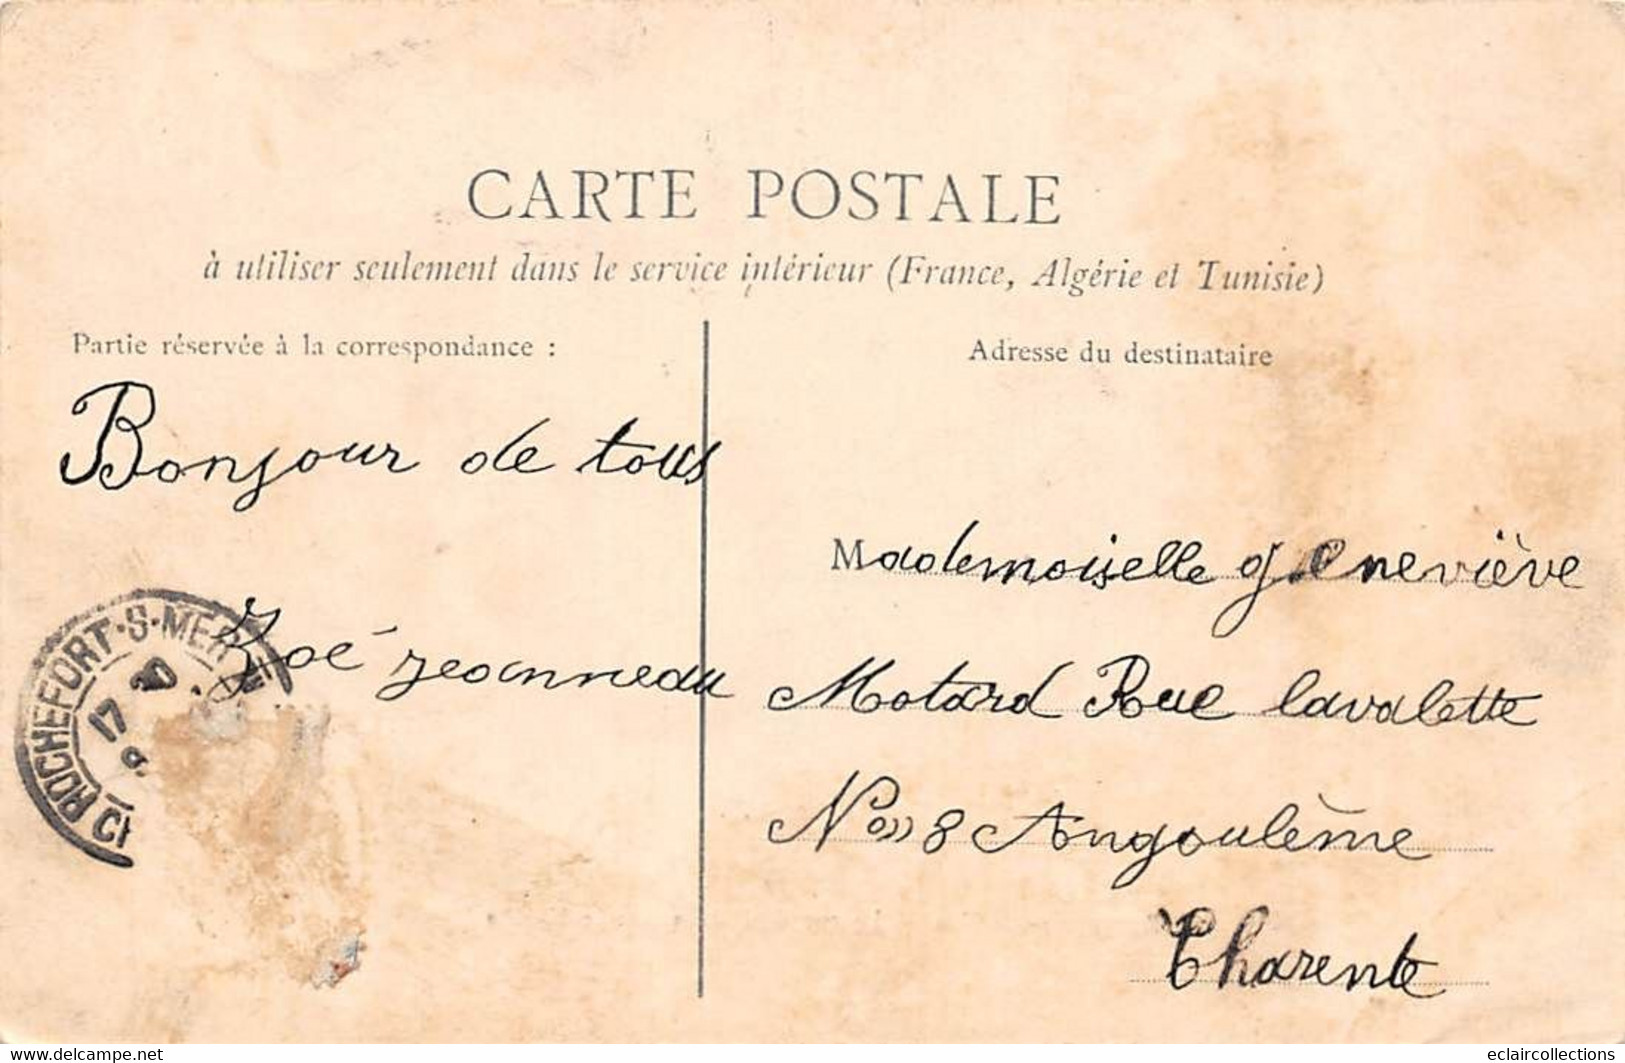 CARTE POSTALE
à utiliser seulement dans le service intérieur (France, Algérie et Tunisie)
Partie réservée à la correspondance :
Bonjour de tous
Zoé jeanneau
ROCHEFORT-S-MER
17
Adresse du destinataire
Mademoiselle geneviève
Motard Rue lavalette
No 8 Angoulème
Charente
eclaircollections
www.delcampe.net